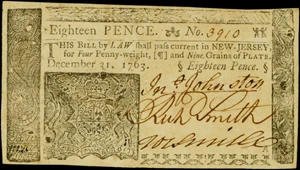 Eighteen PENCE. No. 3910
THIS BILL by LAW shall pass current in NEW-JERSEY,
for Four Penny-weight, [¶] and Nine Grains of PLATE.
December 31, 1763. § Eighteen Pence. §
Jno Johnston
Rich Smith
W Smith